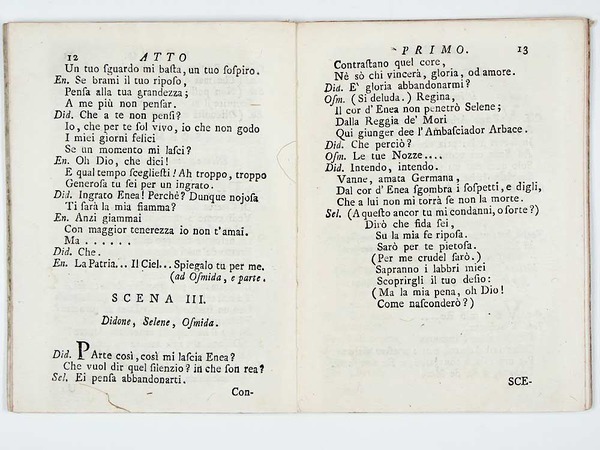 12 ATTO
Un tuo ſguardo mi baſta, un tuo ſoſpiro.
En. Se brami il tuo ripoſo,
Penſa alla tua grandezza;
A me più non penſar.
Did. Che a te non penſi?
Io, che per te ſol vivo, io che non godo
I miei giorni felici
Se un momento mi laſci?
En. Oh Dio, che dici!
E qual tempo ſceglieſti! Ah troppo, troppo
Generoſa tu ſei per un ingrato.
Did. Ingrato Enea! Perchè? Dunque nojoſa
Ti ſarà la mia fiamma?
En. Anzi giammai
Con maggior tenerezza io non t'amai.
Ma . . . . . .
Did. Che.
En. La Patria... Il Ciel... Spiegalo tu per me.
(ad Oſmida, e parte.
SCENA III.
Didone, Selene, Oſmida.
Did. PArte così, così mi laſcia Enea?
Che vuol dir quel ſilenzio? in che ſon rea?
Sel. Ei penſa abbandonarti.
Con-
PRIMO. 13
Contraſtano quel core,
Nè sò chi vincerà, gloria, od amore.
Did. E' gloria abbandonarmi?
Oſm. (Si deluda.) Regina,
Il cor d'Enea non penetrò Selene;
Dalla Reggia de' Mori
Qui giunger dee l'Ambaſciador Arbace.
Did. Che perciò?
Oſm. Le tue Nozze....
Did. Intendo, intendo.
Vanne, amata Germana,
Dal cor d'Enea ſgombra i ſoſpetti, e digli,
Che a lui non mi torrà ſe non la morte.
Sel. (A queſto ancor tu mi condanni, o ſorte?)
Dirò che fida ſei,
Su la mia fe ripoſa.
Sarò per te pietoſa.
(Per me crudel ſarò.)
Sapranno i labbri miei
Scoprirgli il tuo deſio:
(Ma la mia pena, oh Dio!
Come naſconderò?)
SCE-